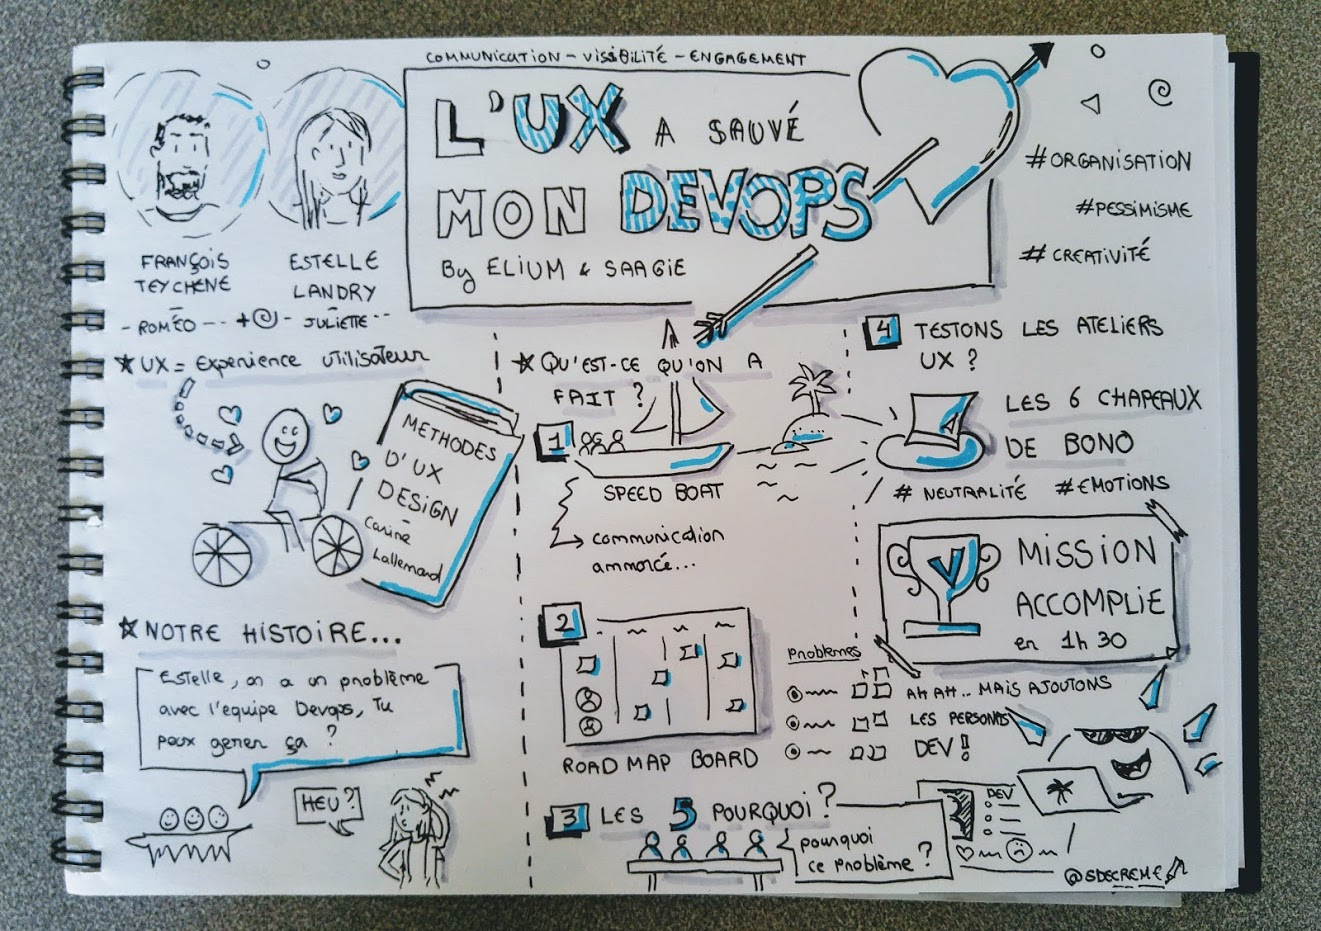 COMMUNICATION - VISSIBILITÉ - ENGAGEMENT
L'UX A SAUVÉ
MON DEVOPS
By ELIUM & SAAGIE
FRANÇOIS
TEYCHENÉ
- ROMÉO --- +
ESTELLE
LANDRY
- JULIETTE --
#ORGANISATION
#PESSIMISME
# CREATIVITÉ
UX = Expérience utilisateur
METHODES
D'UX
DESIGN
Carine
Lallemand
NOTRE HISTOIRE...
Estelle, on a un problème
avec l'equipe Devops, Tu
peux gerer ça ?
HEU?
QU'EST-CE QU'ON A
FAIT ?
1
SPEED BOAT
communication
ammorcé...
2
ROAD MAP BOARD
3 LES 5 POURQUOI ?
pourquoi
ce problème ?
4 TESTONS LES ATELIERS
UX ?
LES 6 CHAPEAUX
DE BONO
# NEUTRALITÉ #EMOTIONS
V
MISSION
ACCOMPLIE
en 1h 30
Problemes
AH AH.. MAIS AJOUTONS
LES PERSONAS
DEV !
DEV
@SDECREME